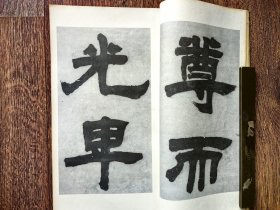 尊而
光卑